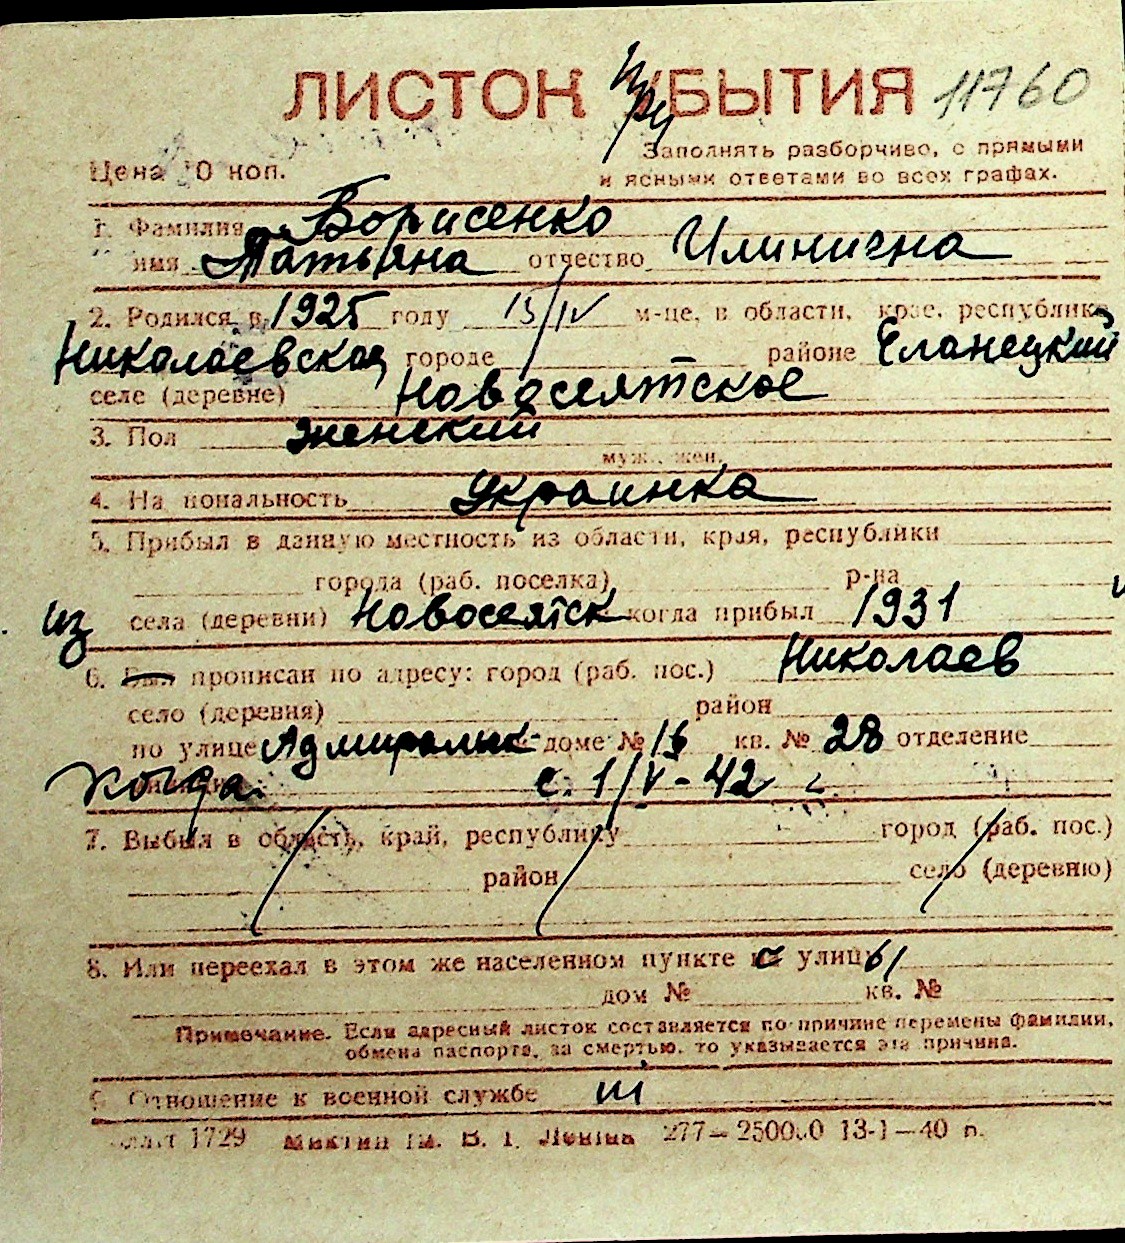 ЛИСТОК УБЫТИЯ При 11760
Цена 10 коп. Заполнять разборчиво, с прямыми
и ясными ответами во всех графах.
1. Фамилия Борисенко
имя Татьяна отчество Илинична
2. Родился в 1925 году 15/IV м-це, в области, крае, республике
Николаевская городе районе Еланецкий
селе (деревне) Новосеятское
3. Пол женский
муж., жен.
4. На иональность украинка
5. Прибыл в данную местность из области, края, республики
города (раб. поселка) р-на
из села (деревни) Новосеятск когда прибыл 1931
6. Был прописан по адресу: город (раб. пос.) Николаев
село (деревня) район
по улице Адмиральск доме № 16 кв. № 28 отделение
Когда с. 1/V-42
7. Выбыл в область, край, республику город (раб. пос.)
район село (деревню)
8. Или переехал в этом же населенном пункте с улицы
дом № кв. №
Примечание. Если адресный листок составляется по причине перемены фамилии,
обмена паспорта, за смертью, то указывается эта причина.
9. Отношение к военной службе
1729 Ленiна 277—250000 13-1—40 п.